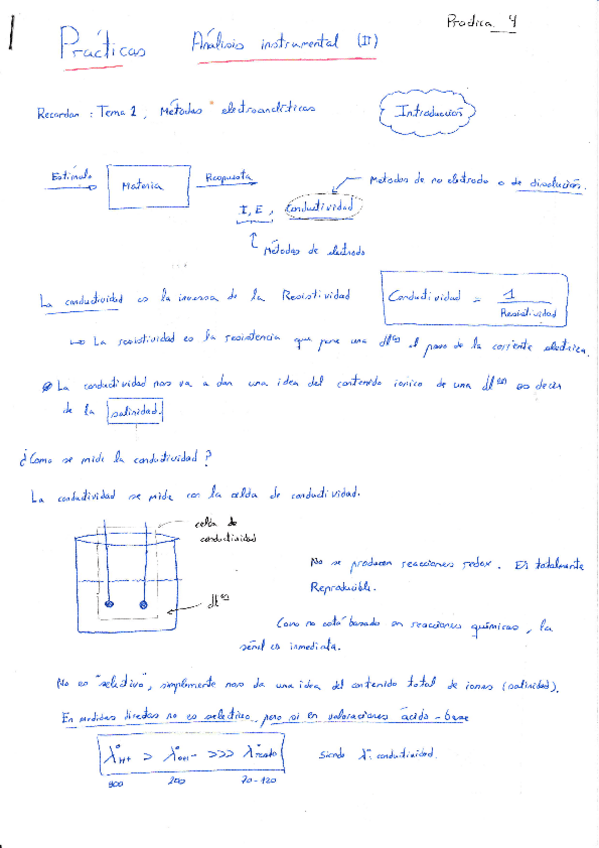 Practica 4
Prácticas Análisis instrumental (II)
Recordar : Tema 1, Métodos electroanalíticos
Introducción
Estímulo
Materia
Respuesta
Métodos de no electrodo o de disolución.
I, E, Conductividad
Métodos de electrodo
La conductividad es la inversa de la Resistividad
Conductividad = 1
Resistividad
La resistividad es la resistencia que pone una dlon al paso de la corriente electrica.
La conductividad nos va a dar una idea del contenido ionico de una dlon es decir
de la salinidad.
¿Como se mide la conductividad?
La conductividad se mide con la celda de conductividad.
celda de
conductividad
dlon
No se producen reacciones redox. Es totalmente
Reproducible.
Como no está basado en reacciones químicas, la
señal es inmediata.
No es "selectivo", simplemente nos da una idea del contenido total de iones (salinidad).
En medidas directas no es selectivo, pero si en valoraciones ácido-base
λ°H+ > λ°OH- >>> λ°resto
Siendo λ° conductividad.
200
70-120